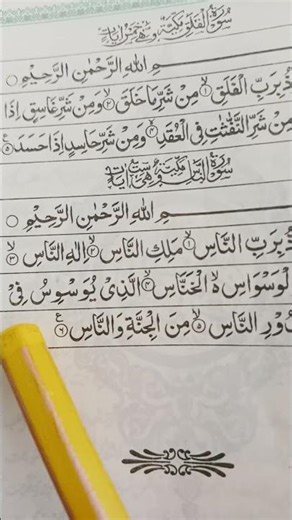 سُوْرَةُ الْفَلَقِ مَكِّيَّةٌ وَّهِيَ خَمْسُ اٰيَاتٍ
مِ اللّٰهِ الرَّحْمٰنِ الرَّحِيْمِ
ذُ بِرَبِّ الْفَلَقِ ۙ﴿۱﴾ مِنْ شَرِّ مَا خَلَقَ ۙ﴿۲﴾ وَمِنْ شَرِّ غَاسِقٍ اِذَا
مِنْ شَرِّ النَّفّٰثٰتِ فِی الْعُقَدِ ۙ﴿۴﴾ وَمِنْ شَرِّ حَاسِدٍ اِذَا حَسَدَ ﴿۵﴾ ع
سُوْرَةُ النَّاسِ مَكِّيَّةٌ وَّهِيَ سِتُّ اٰيَاتٍ
مِ اللّٰهِ الرَّحْمٰنِ الرَّحِيْمِ
ذُ بِرَبِّ النَّاسِ ۙ﴿۱﴾ مَلِكِ النَّاسِ ۙ﴿۲﴾ اِلٰهِ النَّاسِ ۙ﴿۳﴾
لْوَسْوَاسِ ۙ۬ الْخَنَّاسِ ۙ﴿۴﴾ الَّذِیْ یُوَسْوِسُ فِیْ
دُوْرِ النَّاسِ ۙ﴿۵﴾ مِنَ الْجِنَّةِ وَالنَّاسِ ﴿۶﴾ ع